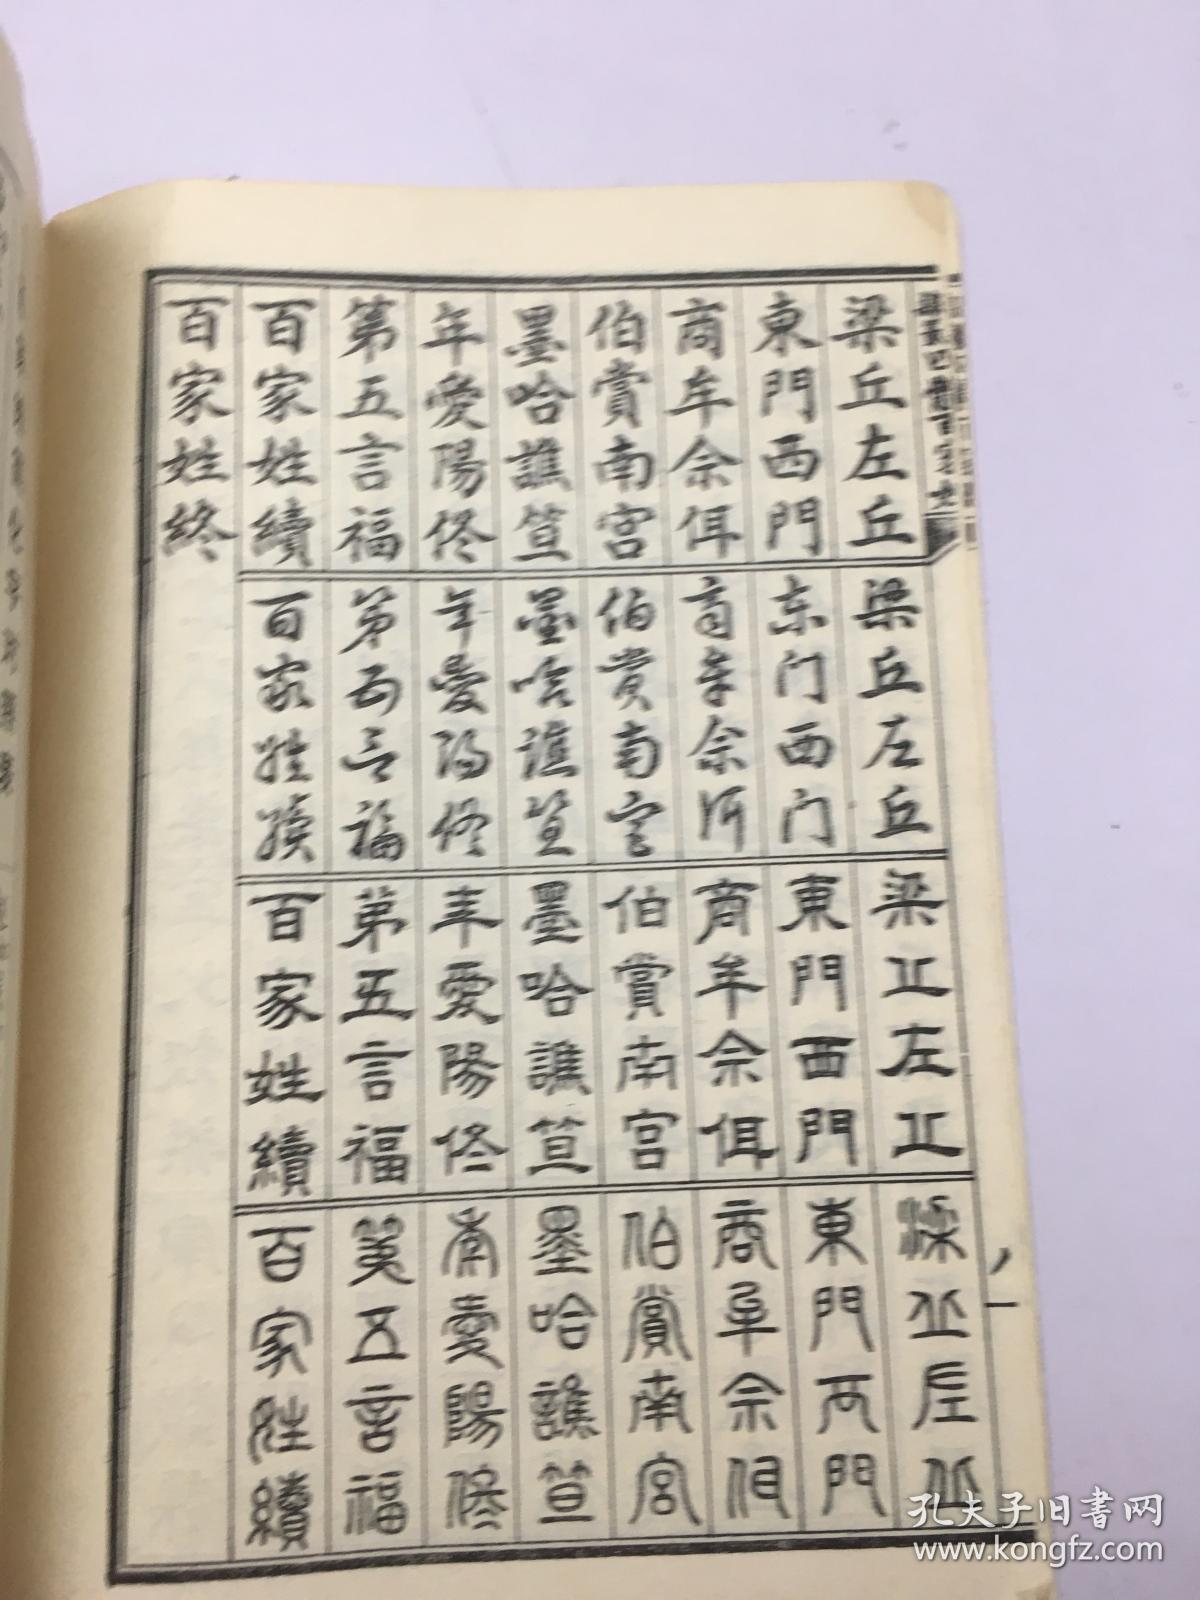 梁丘左丘
東門西門
商牟佘佴
伯賞南宮
墨哈譙笪
年愛陽佟
第五言福
百家姓續
百家姓終
梁丘左丘
东门西门
商牟佘佴
伯賞南宮
墨哈譙笪
年愛陽佟
第五言福
百家姓續
梁丘左丘
東門西門
商牟佘佴
伯賞南宮
墨哈譙笪
年愛陽佟
第五言福
百家姓續
梁丘左丘
東門西門
商牟佘佴
伯賞南宮
墨哈譙笪
年愛陽佟
第五言福
百家姓續
孔夫子旧书网
www.kongfz.com